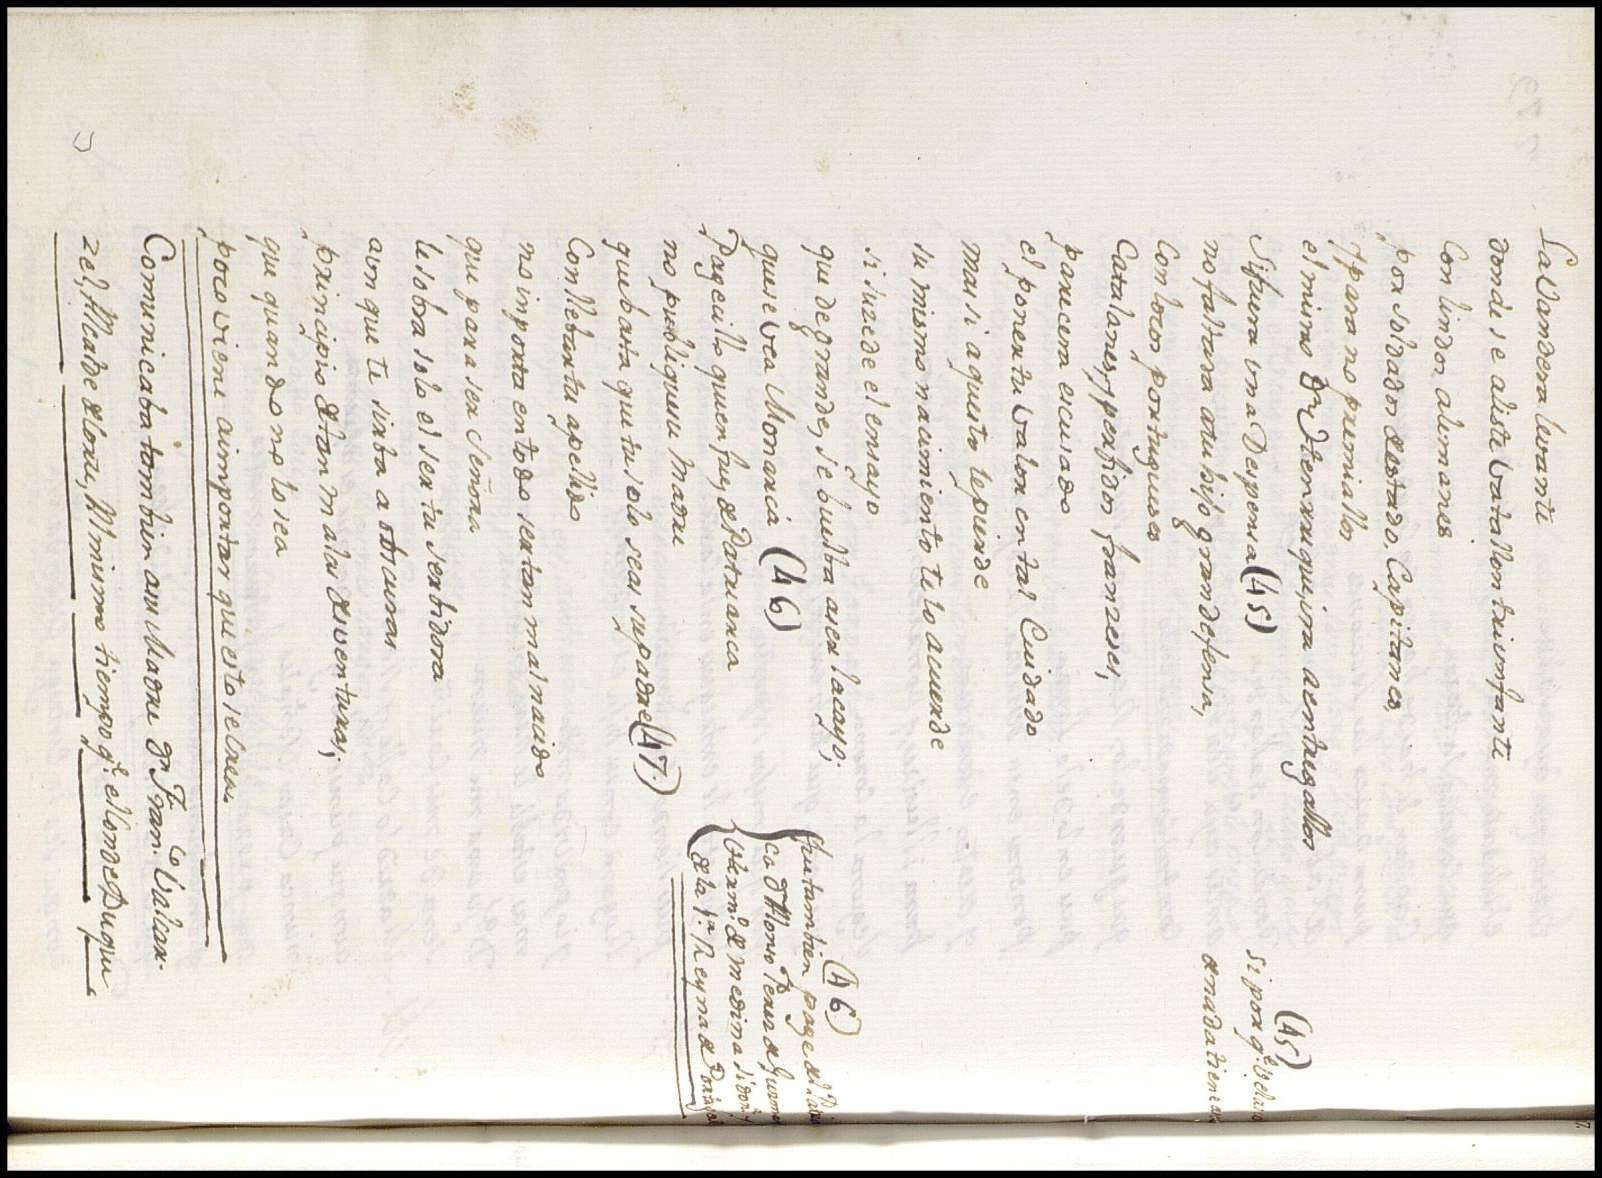 La Vandera levante
donde se aliste batallon triumfante
Con lindos alemanes
por soldados de estado, Capitanes,
Y para no premiallos
el mismo Dn Henrrique, ira a entregallos
Si fuera una Despensa (45)
no faltara a tu hijo gran defensa,
Con locos portugueses
Catalanes, y perfidos franzeses,
parecera escusado
el poner tu valor en tal Cuidado
mas si aquesto se pierde
su mismo nacimiento te lo acuerde
si suzede el ensayo
que de grande, se buelba a ser lacayo;
que se vea Monarca (46)
Pagecillo quien fue, de Patriarca
no publique Madre
que basta que tu solo seas su padre (47.)
Con llebar tu apellido
no inporta en todo ser tan mal nacido
que para ser Señora
le sobra solo el ser tu serbidora
aun que te sirba a obscuras
principio de tan malas desventuras,
que quando no lo sea
poco viene a importar que esto se Crea.
Comunicaba tambien a su Madre Dn Franco. Valcar-
zel, Alcalde de Corte, Al mismo tiempo qe. el Conde Duque
(45)
si porqe.
de nada tiene
(46)
fue tambien page de
ca Dn Alonso Perez de Guzman
hermo. de Medina Sidonia
de la Sra. Reyna de Portugal